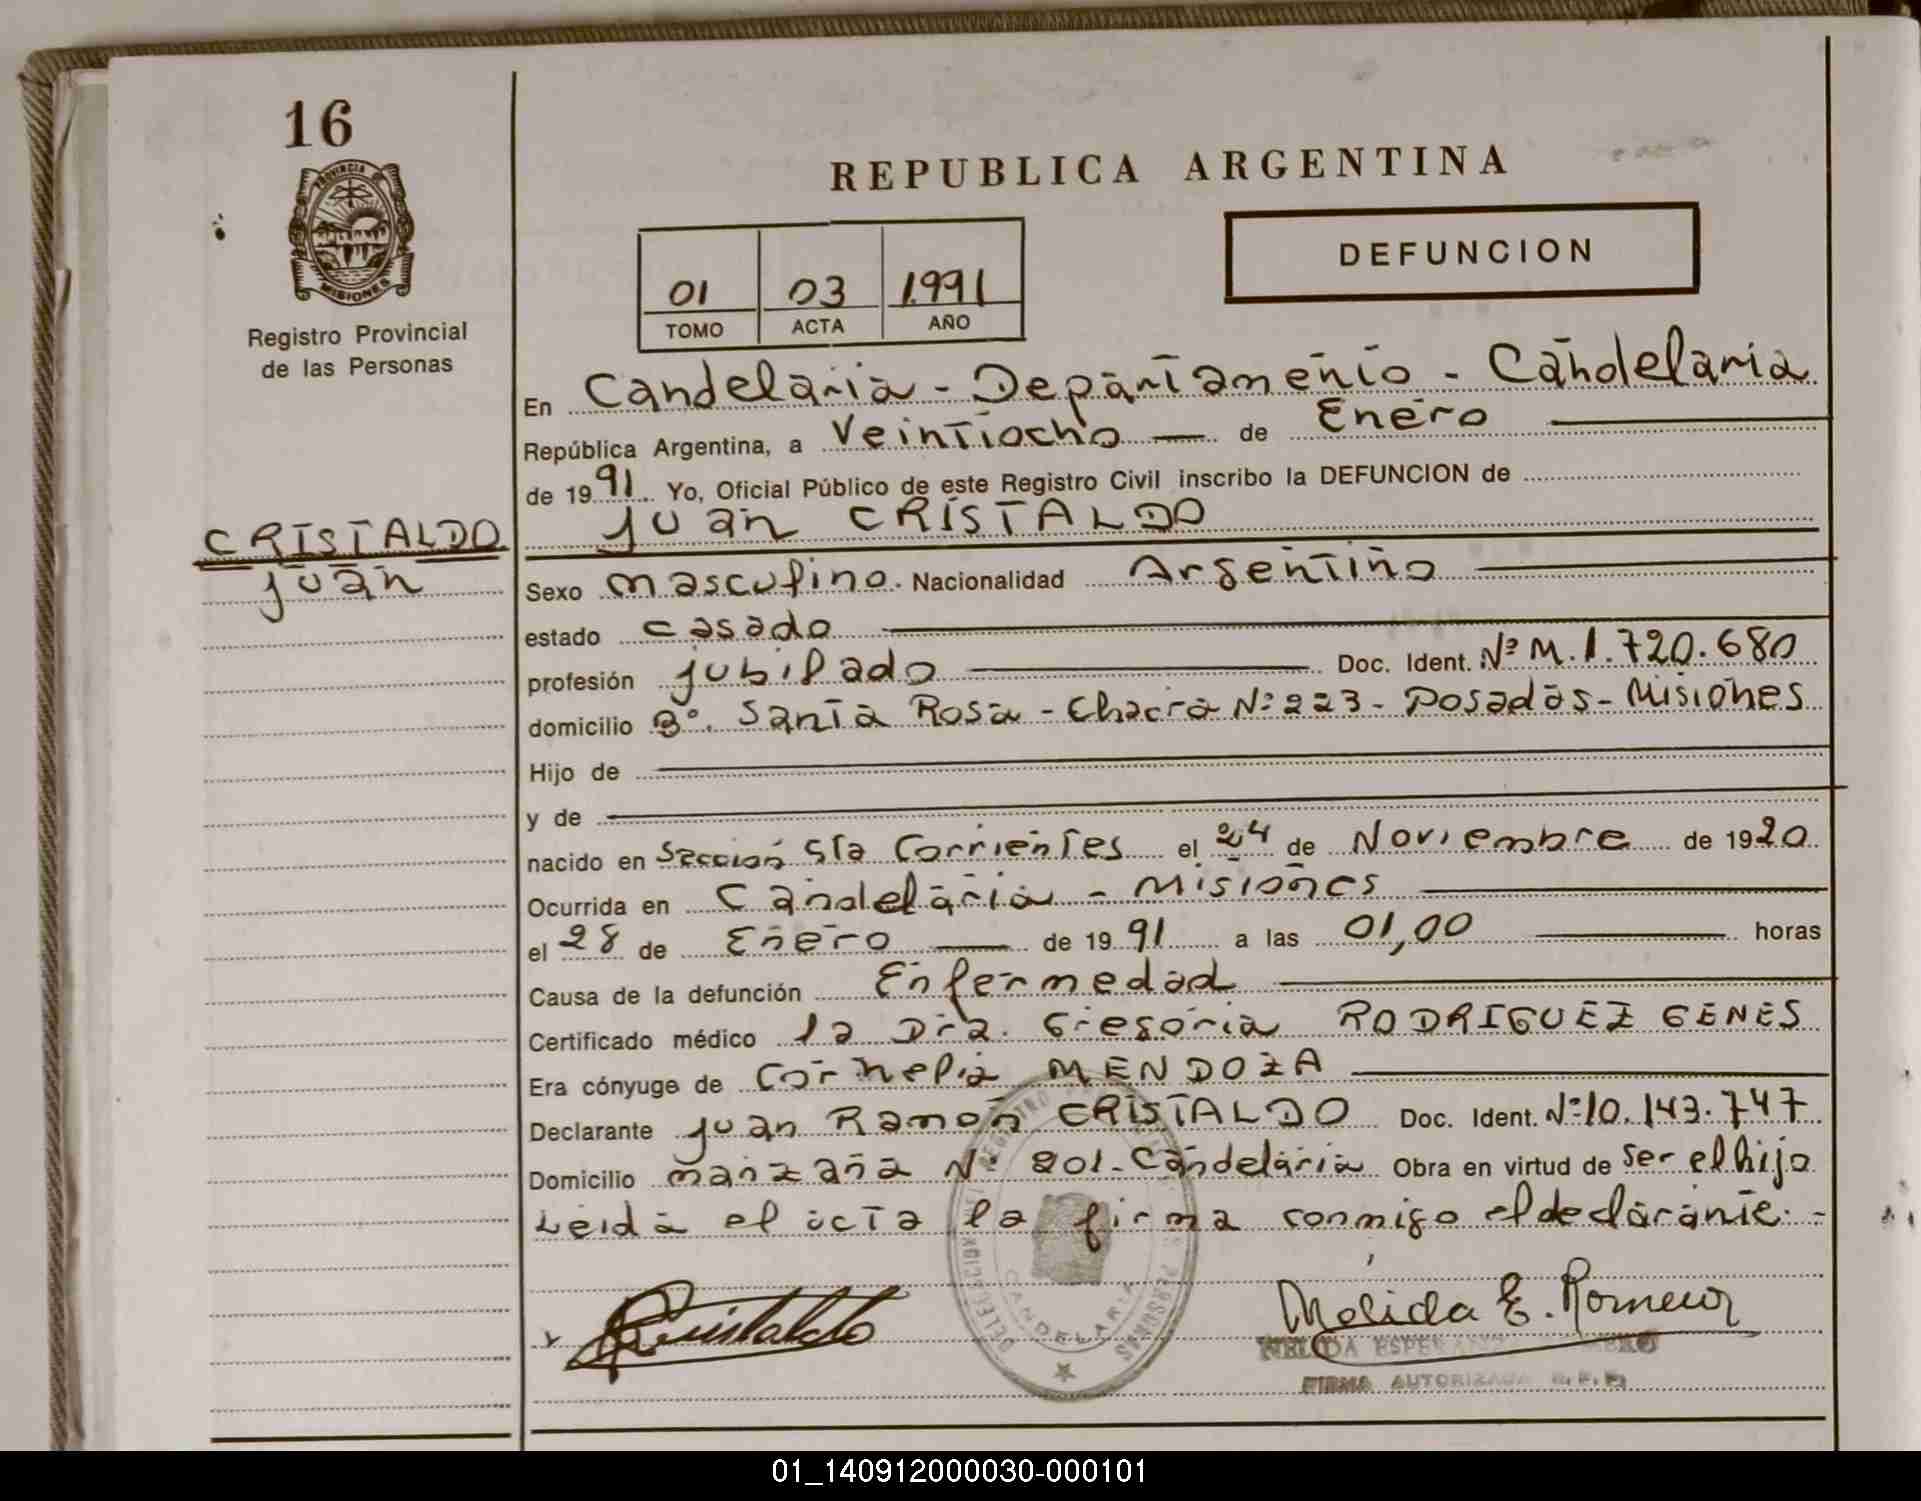 16
PROVINCIA DE
MISIONES
Registro Provincial
de las Personas
REPUBLICA ARGENTINA
01 03 1991
TOMO ACTA AÑO
DEFUNCION
En Candelaria - Departamento - Candelaria
República Argentina, a Veintiocho — de Enero
de 1991. Yo, Oficial Público de este Registro Civil inscribo la DEFUNCION de
Juan CRISTALDO
CRISTALDO
Juan
Sexo masculino. Nacionalidad Argentino
estado casado
profesión jubilado Doc. Ident. Nº M.1.720.680
domicilio Bº. Santa Rosa - Chacra Nº 223 - Posadas - Misiones
Hijo de
y de
nacido en Sección 5ta Corrientes el 24 de Noviembre de 1920
Ocurrida en Candelaria - Misiones
el 28 de Enero — de 1991 a las 01,00 horas
Causa de la defunción Enfermedad
Certificado médico la Dra. Gregoria RODRIGUEZ GENES
Era cónyuge de Cornelia MENDOZA
Declarante Juan Ramón CRISTALDO Doc. Ident. Nº 10.143.747
Domicilio manzana Nº 201 - Candelaria Obra en virtud de ser el hijo
Leida el acta la firma conmigo el declarante. -
Cristaldo
CANDELARIA
Nelida E. Romero
NELIDA ESPERANZA ROMERO
FIRMA AUTORIZADA R.P.P.
01_140912000030-000101